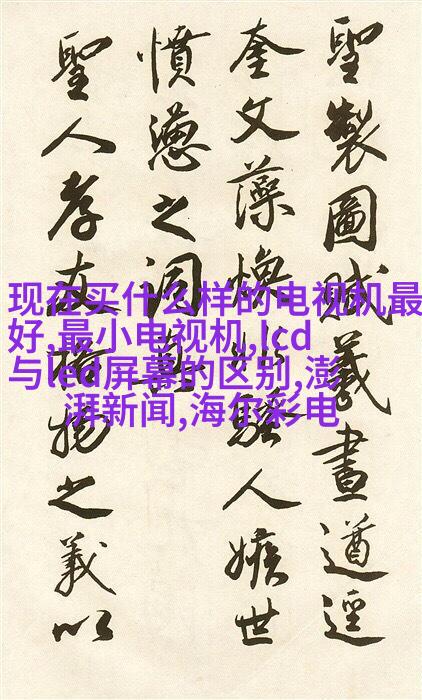 现在买什么样的电视机最
好,最小电视机,lcd
与led屏幕的区别,澎
湃新闻,海尔彩电
聖製圖賦羲畫遒逕
奎文藻煥非騷人嫉世
憤懣之詞
聖人孝之義以